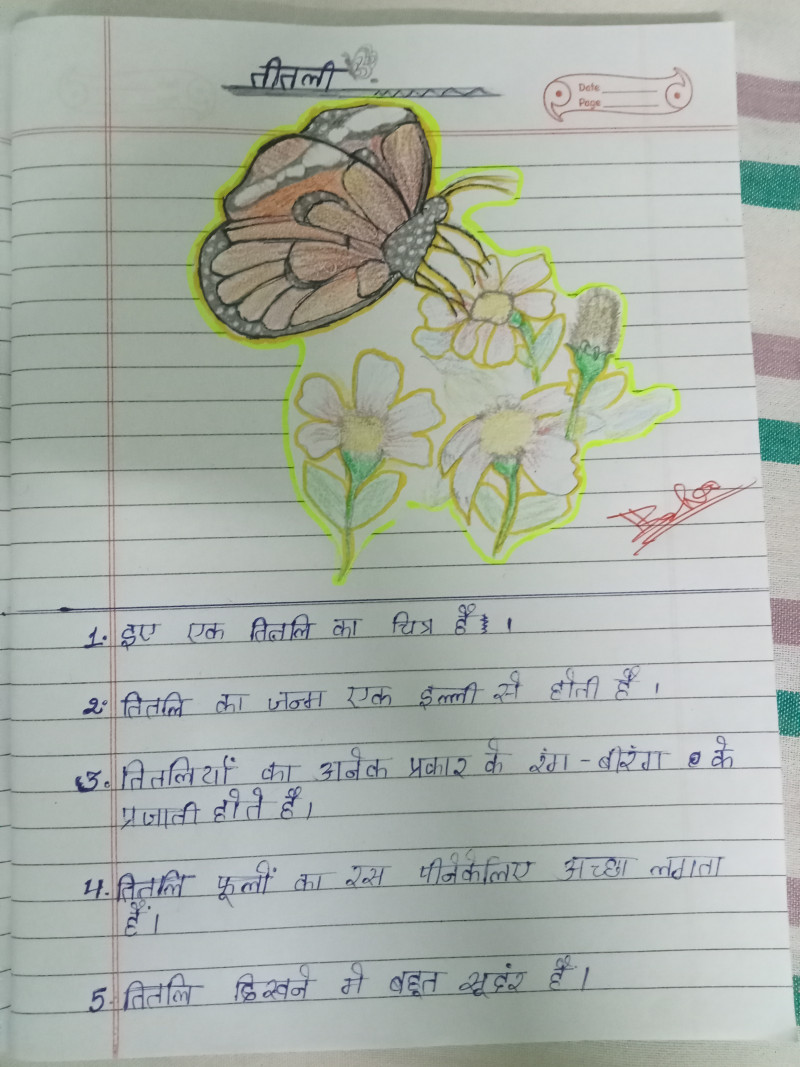 तीतली
Date
Page
1. इए एक तितलि का चित्र है ।
2. तितलि का जन्म एक इल्ली से होती है ।
3. तितलियों का अनेक प्रकार के रंग - बीरंग के
प्रजाती होते है ।
4. तितलि फूलों का रस पीनेकेलिए अच्छा लगता
है ।
5. तितलि दिखने मे बहूत सूदंर है ।